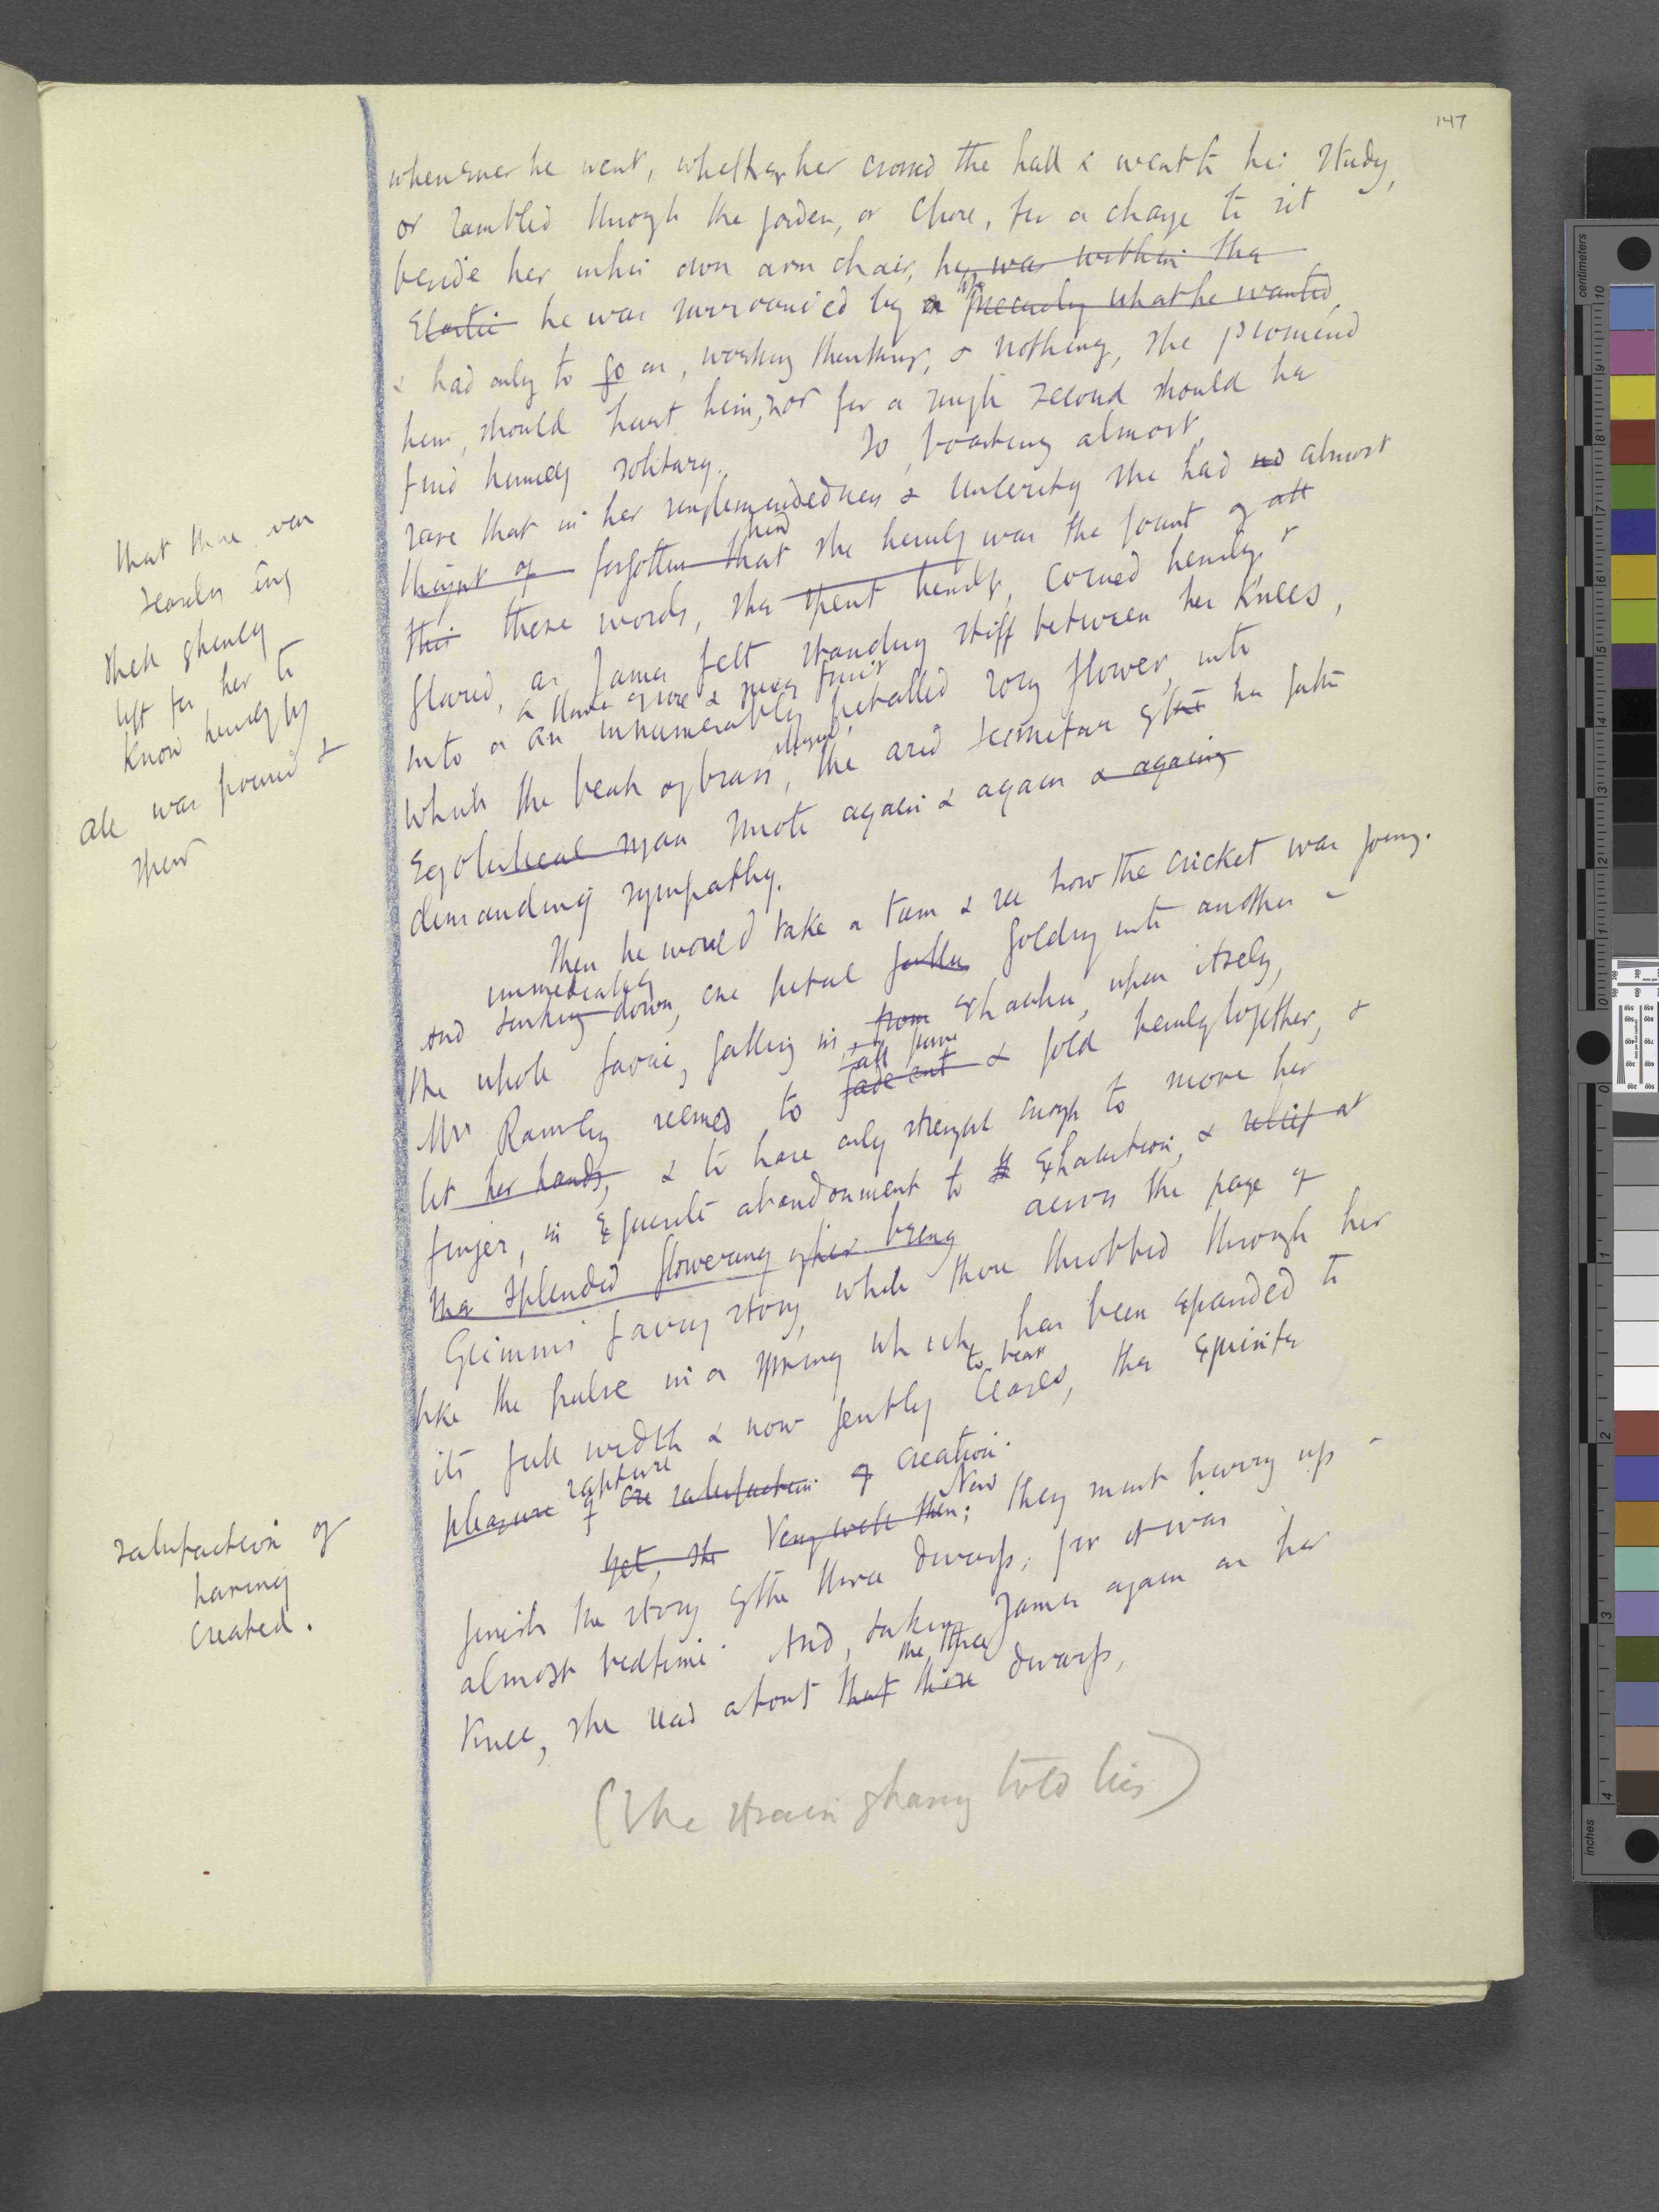 147
whenever he went, whether her crossed the hall & went to his study,
or rambled through the garden, or chose, for a change to sit
beside her in his own arm chair, he was within the
Elastic he was surrounded by a life precisely what he wanted,
& had only to go on, working thinking, & nothing, she promised
him, should hurt him, nor for a single second should he
find himself solitary. So, boasting almost,
save that in her singlemindedness & sincerity she had no almost
thought of forgotten that she herself was the fount of all
this these words, she spent herself, coined herself &
flared, as James felt standing stiff between her knees,
into a an innumerably petalled rosy flower, into
which the beak of brass, the arid scimitar of his father
Egotistical man smote again & again & again,
demanding sympathy.
that there was
scarcely any
shell of herself
left for her to
know herself by
all was poured &
spent
Then he would take a turn & see how the cricket was going.
immediately
And sinking down, one petal folding into another
the whole fabric, falling in, from exhaustion, upon itself,
Mrs Ramsay seemed to fade out & fold herself together, &
let her hands, & to have only strength enough to move her
finger, in exquisite abandonment to exhaustion, & relief at
the splendid flowering of her being across the page of
Grimms' fairy story, while there throbbed through her
like the pulse in a spring which has been expanded to
its full width & now gently ceases, to beat the exquisite
pleasure rapture of satisfaction of creation.
satisfaction of
having
created.
Yet, she Very well then; Now they must hurry up
finish the story of the three dwarfs; for it was
almost bedtime. And, taking James again on her
knee, she read about that three the three dwarfs,
(The strain of having told lies)